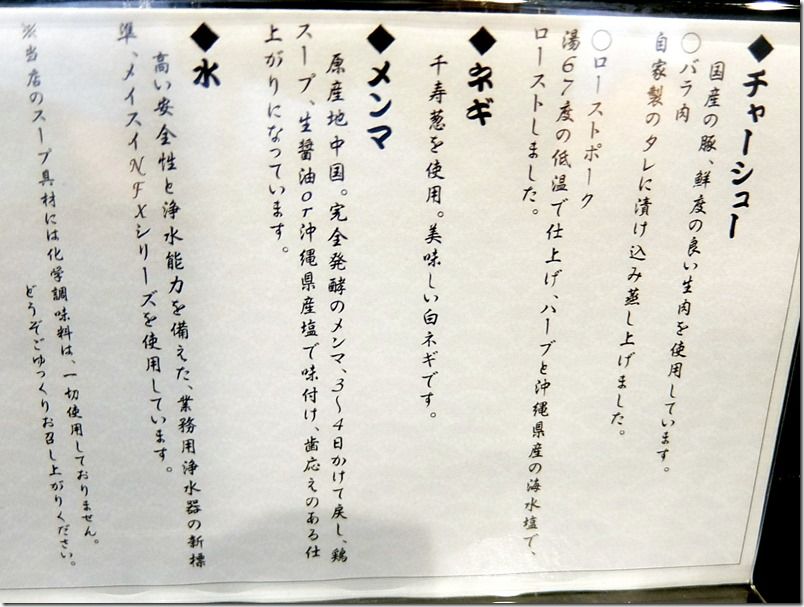 ◆チャーシュー
国産の豚、鮮度の良い生肉を使用しています。
○バラ肉
自家製のタレに漬け込み蒸し上げました。
○ローストポーク
湯67度の低温で仕上げ、ハーブと沖縄県産の海水塩で、
ローストしました。
◆ネギ
千寿葱を使用。美味しい白ネギです。
◆メンマ
原産地中国。完全発酵のメンマ、3〜4日かけて戻し、鶏
スープ、生醤油or沖縄県産塩で味付け、歯応えのある仕
上がりになっています。
◆水
高い安全性と浄水能力を備えた、業務用浄水器の新標
準、メイスイNFXシリーズを使用しています。
※当店のスープ具材には化学調味料は、一切使用しておりません。
どうぞごゆっくりお召し上がりください。